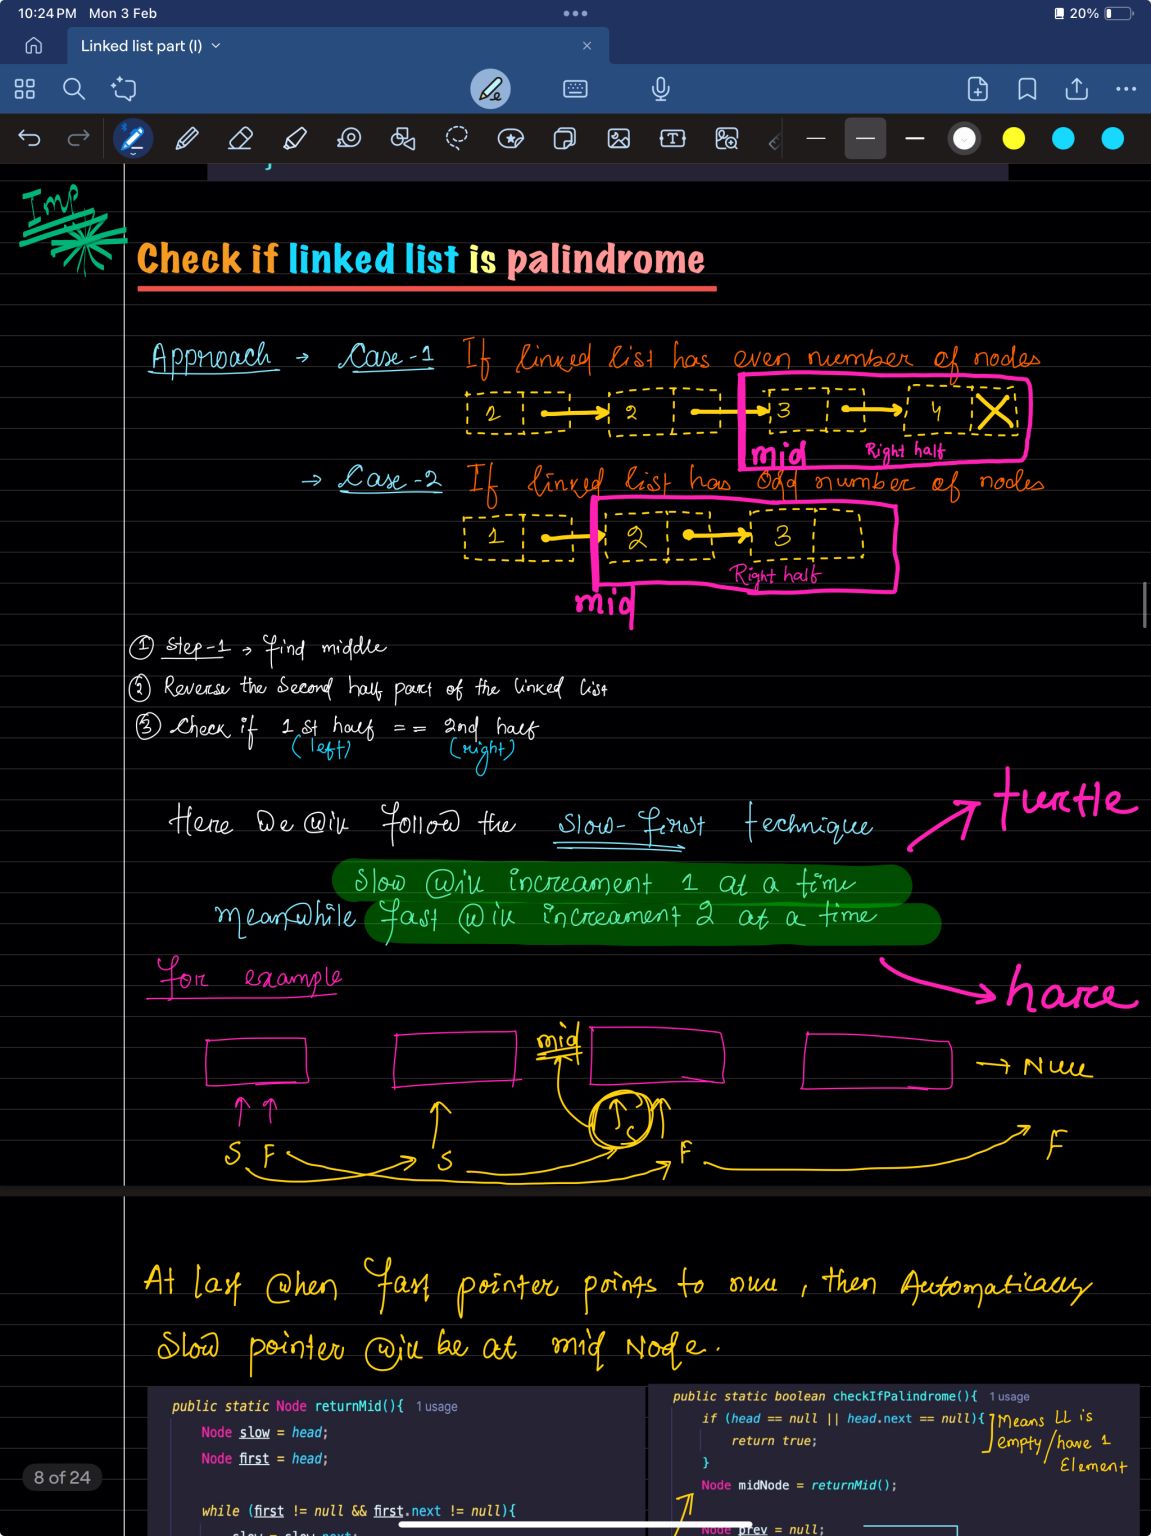 10:24 PM Mon 3 Feb
20%
Linked list part (I)
Imp
Check if linked list is palindrome
Approach → Case-1 If linked list has even number of nodes
1 2 3 4
mid Right half
→ Case-2 If linked list has odd number of nodes
1 2 3
Right half
mid
① Step-1 → find middle
② Reverse the second half part of the linked list
③ Check if 1st half == 2nd half
(left) (right)
turtle
Here we will follow the slow-first technique
slow will increament 1 at a time
meanwhile fast will increament 2 at a time
for example
hare
mid
→ Null
S
S F S F F
At last when fast pointer points to null, then Automatically
slow pointer will be at mid Node.
public static Node returnMid(){ 1 usage
Node slow = head;
Node first = head;
while (first != null && first.next != null){
slow = slow.next;
public static boolean checkIfPalindrome(){ 1 usage
if (head == null || head.next == null){
return true;
}
Means LL is
empty/have 1
Element
Node midNode = returnMid();
Node prev = null;
8 of 24